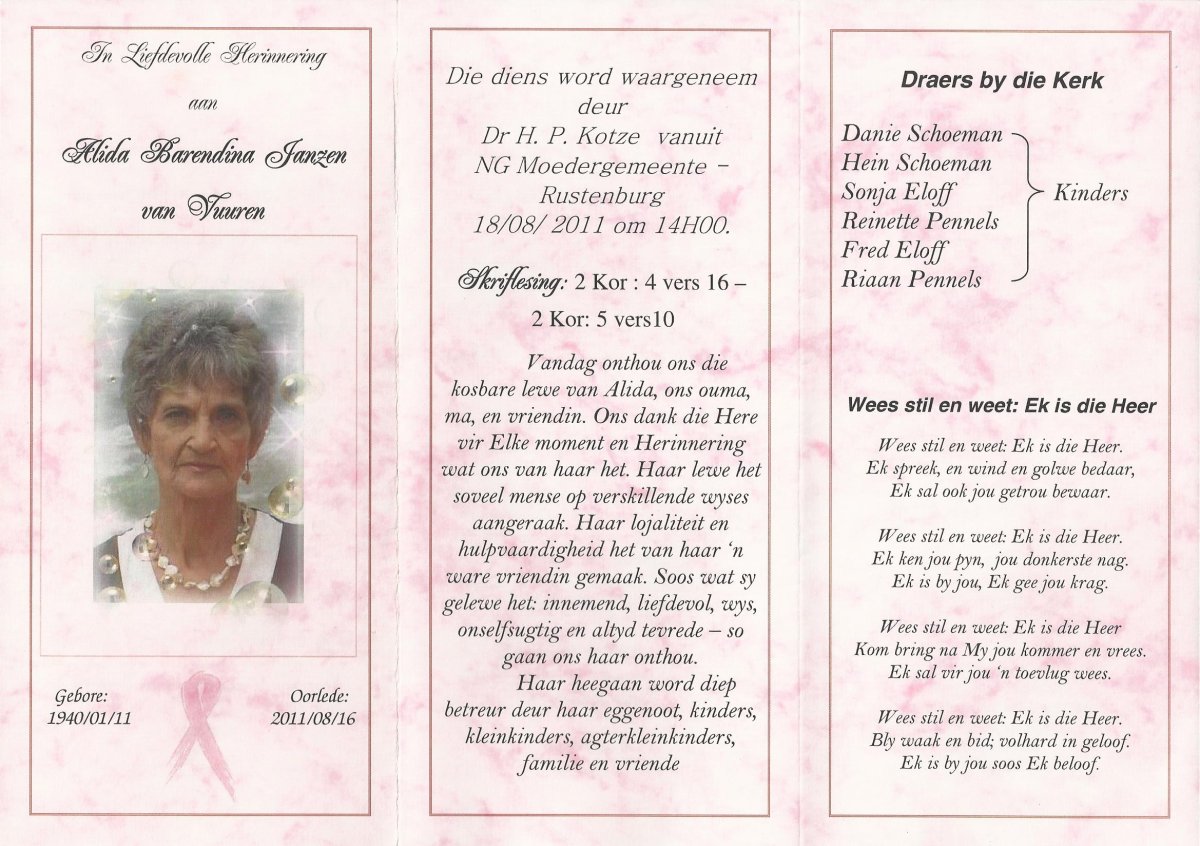 In Liefdevolle Herinnering
aan
Alida Barendina Janzen
van Vuuren
Gebore:
1940/01/11
Oorlede:
2011/08/16
Die diens word waargeneem
deur
Dr H. P. Kotze vanuit
NG Moedergemeente –
Rustenburg
18/08/ 2011 om 14H00.
Skriflesing: 2 Kor : 4 vers 16 –
2 Kor: 5 vers10
Vandag onthou ons die
kosbare lewe van Alida, ons ouma,
ma, en vriendin. Ons dank die Here
vir Elke moment en Herinnering
wat ons van haar het. Haar lewe het
soveel mense op verskillende wyses
aangeraak. Haar lojaliteit en
hulpvaardigheid het van haar ‘n
ware vriendin gemaak. Soos wat sy
gelewe het: innemend, liefdevol, wys,
onselfsugtig en altyd tevrede – so
gaan ons haar onthou.
Haar heegaan word diep
betreur deur haar eggenoot, kinders,
kleinkinders, agterkleinkinders,
familie en vriende
Draers by die Kerk
Danie Schoeman
Hein Schoeman
Sonja Eloff
Reinette Pennels
Fred Eloff
Riaan Pennels
Kinders
Wees stil en weet: Ek is die Heer
Wees stil en weet: Ek is die Heer.
Ek spreek, en wind en golwe bedaar,
Ek sal ook jou getrou bewaar.
Wees stil en weet: Ek is die Heer.
Ek ken jou pyn, jou donkerste nag.
Ek is by jou, Ek gee jou krag.
Wees stil en weet: Ek is die Heer
Kom bring na My jou kommer en vrees.
Ek sal vir jou ‘n toevlug wees.
Wees stil en weet: Ek is die Heer.
Bly waak en bid; volhard in geloof.
Ek is by jou soos Ek beloof.